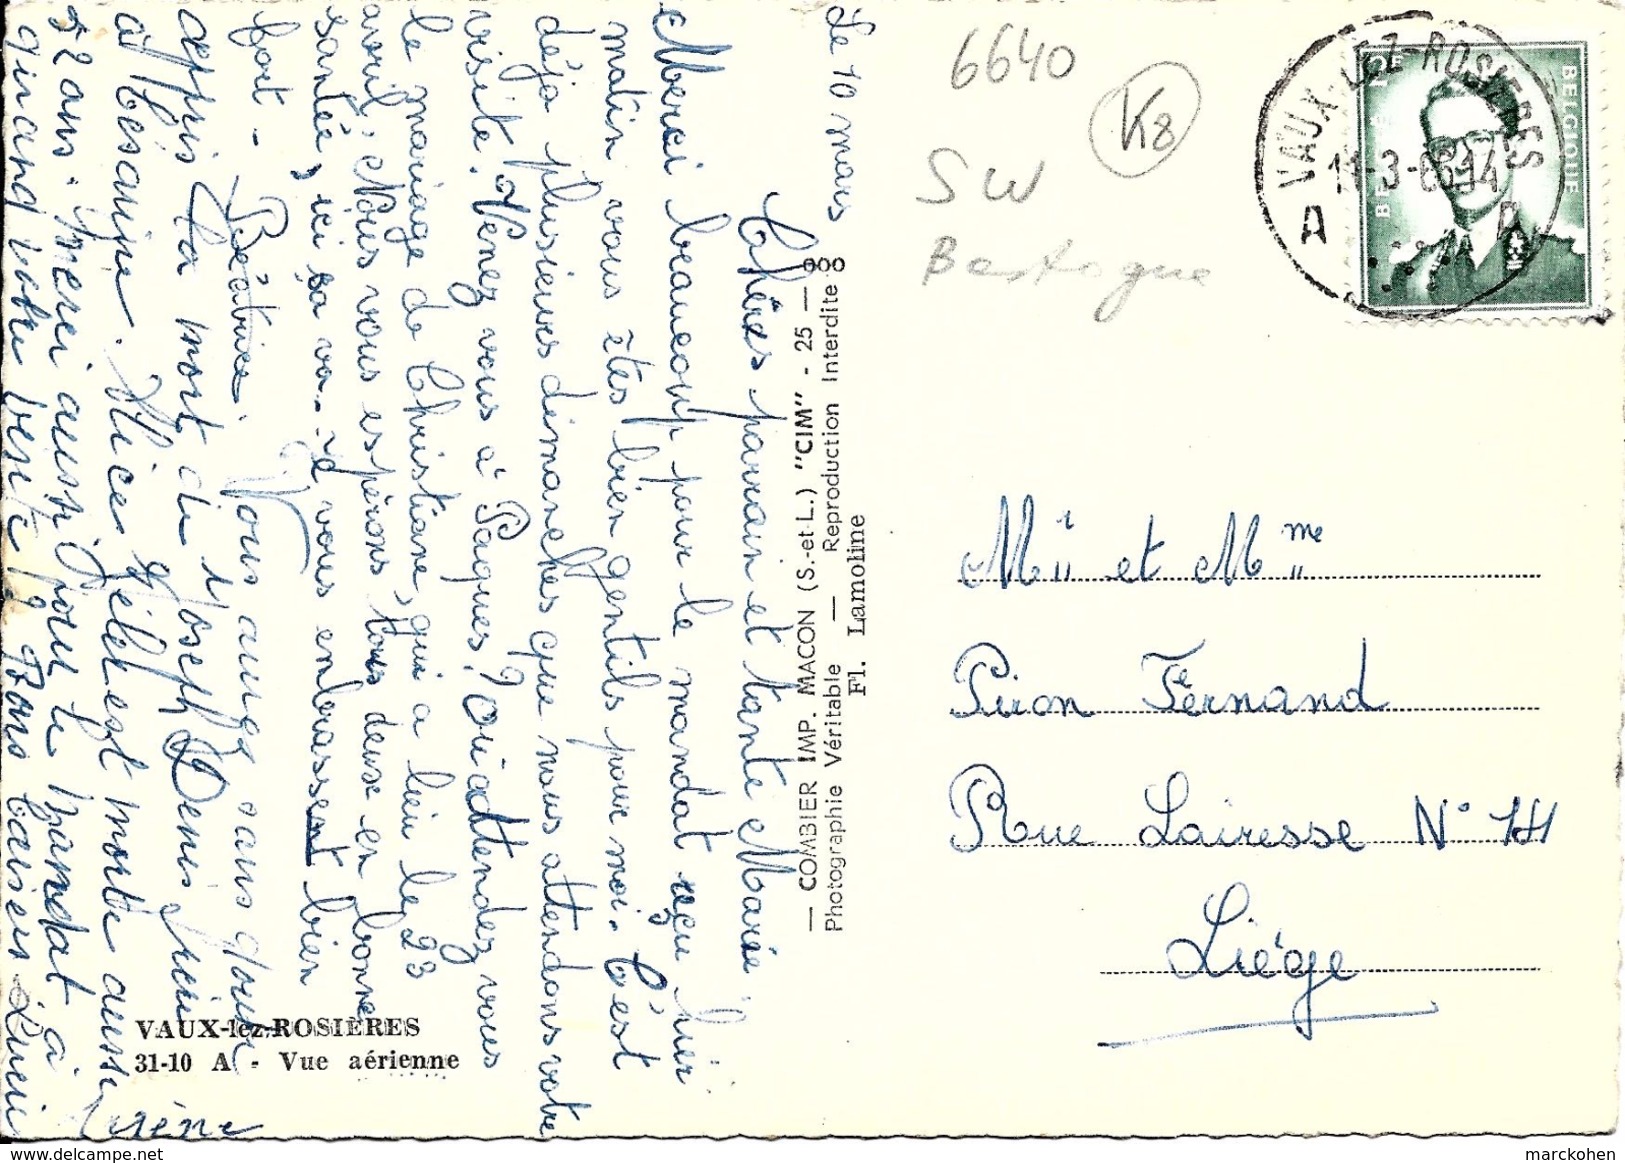 Le 10 mars
Chers parrain et tante Marie
Merci beaucoup pour le mandat reçu hier
matin vous êtes bien gentils pour moi. C'est
déja plusieurs dimanches que nous attendons votre
visite. Venez vous à Paques? ou attendez vous
le mariage de Christiane, qui a lieu le 23
avril. Nous vous espérons tous deux en bonne
santée, ici ça va. Id vous embrassent bien
fort - Béatrice.
Vous aurez sans doute
appris la mort de Joseph Denis
à
est morte aussi
52 ans. merci aussi pour le mandat à
quand votre visite? Bons baisers
Irène
VAUX-lez-ROSIÈRES
31-10 A - Vue aérienne
— COMBIER IMP. MACON (S.-et-L.) "CIM" - 25 —
Photographie Véritable — Reproduction Interdite
Fl. Lamoline
6640
K8
SW
Bastogne
VAUX-LEZ-ROSIERES
A A
BELGIE BELGIQUE
Mr et Mme
Piron Fernand
Rue Lairesse N° 141
Liège
marckohen